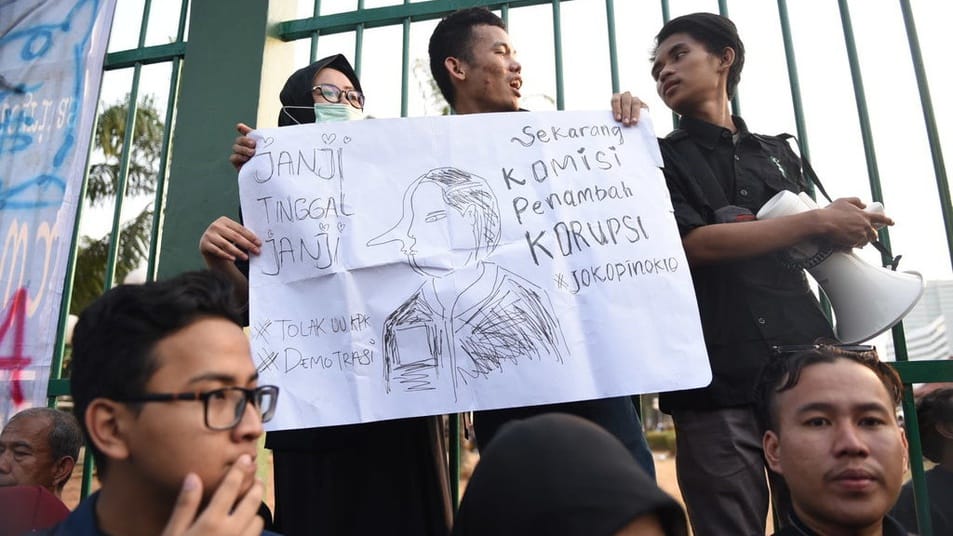 JANJI
TINGGAL
JANJI
* TOLAK UU KPK
* DEMOTRASI
~Sekarang
KOMISI
Penambah
KORUPSI
*JOKOPINOKIO